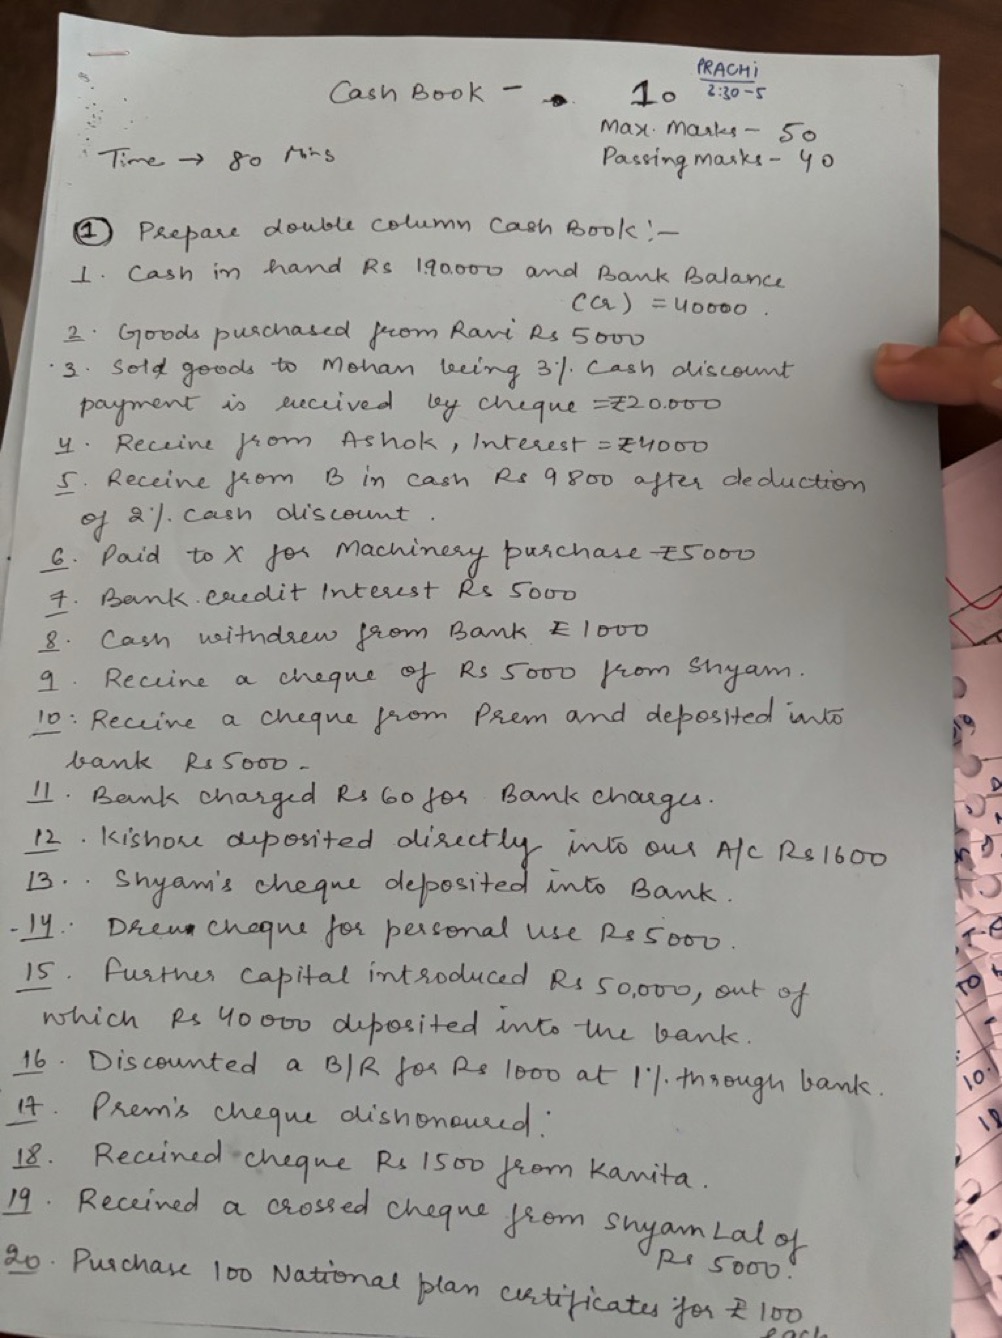 PRACHi
2:30-5
Cash Book - 10
Max. Marks - 50
Time → 80 Mins
Passing Marks - 40
① Prepare double column Cash Book :-
1. Cash in hand Rs 190,000 and Bank Balance
(Cr) = 40000.
2. Goods purchased from Ravi Rs 5000
3. Sold goods to Mohan being 3% Cash discount
payment is received by cheque = ₹20,000
4. Receive from Ashok, Interest = ₹4000
5. Receive from B in cash Rs 9800 after deduction
of 2% cash discount.
6. Paid to X for Machinery purchase ₹5000
7. Bank credit Interest Rs 5000
8. Cash withdrew from Bank ₹1000
9. Receive a cheque of Rs 5000 from Shyam.
10: Receive a cheque from Prem and deposited into
bank Rs 5000-
11. Bank charged Rs 60 for Bank charges.
12. Kishore deposited directly into our A/c Rs 1600
13.. Shyam's cheque deposited into Bank.
14. Drew cheque for personal use Rs 5000.
15. Further capital introduced Rs 50,000, out of
which Rs 40000 deposited into the bank.
16. Discounted a B/R for Rs 1000 at 1% through bank.
17. Prem's cheque dishonoured:
18. Received cheque Rs 1500 from Kavita.
19. Received a crossed cheque from Shyam Lal of
Rs 5000.
20. Purchase 100 National plan certificates for ₹100
each